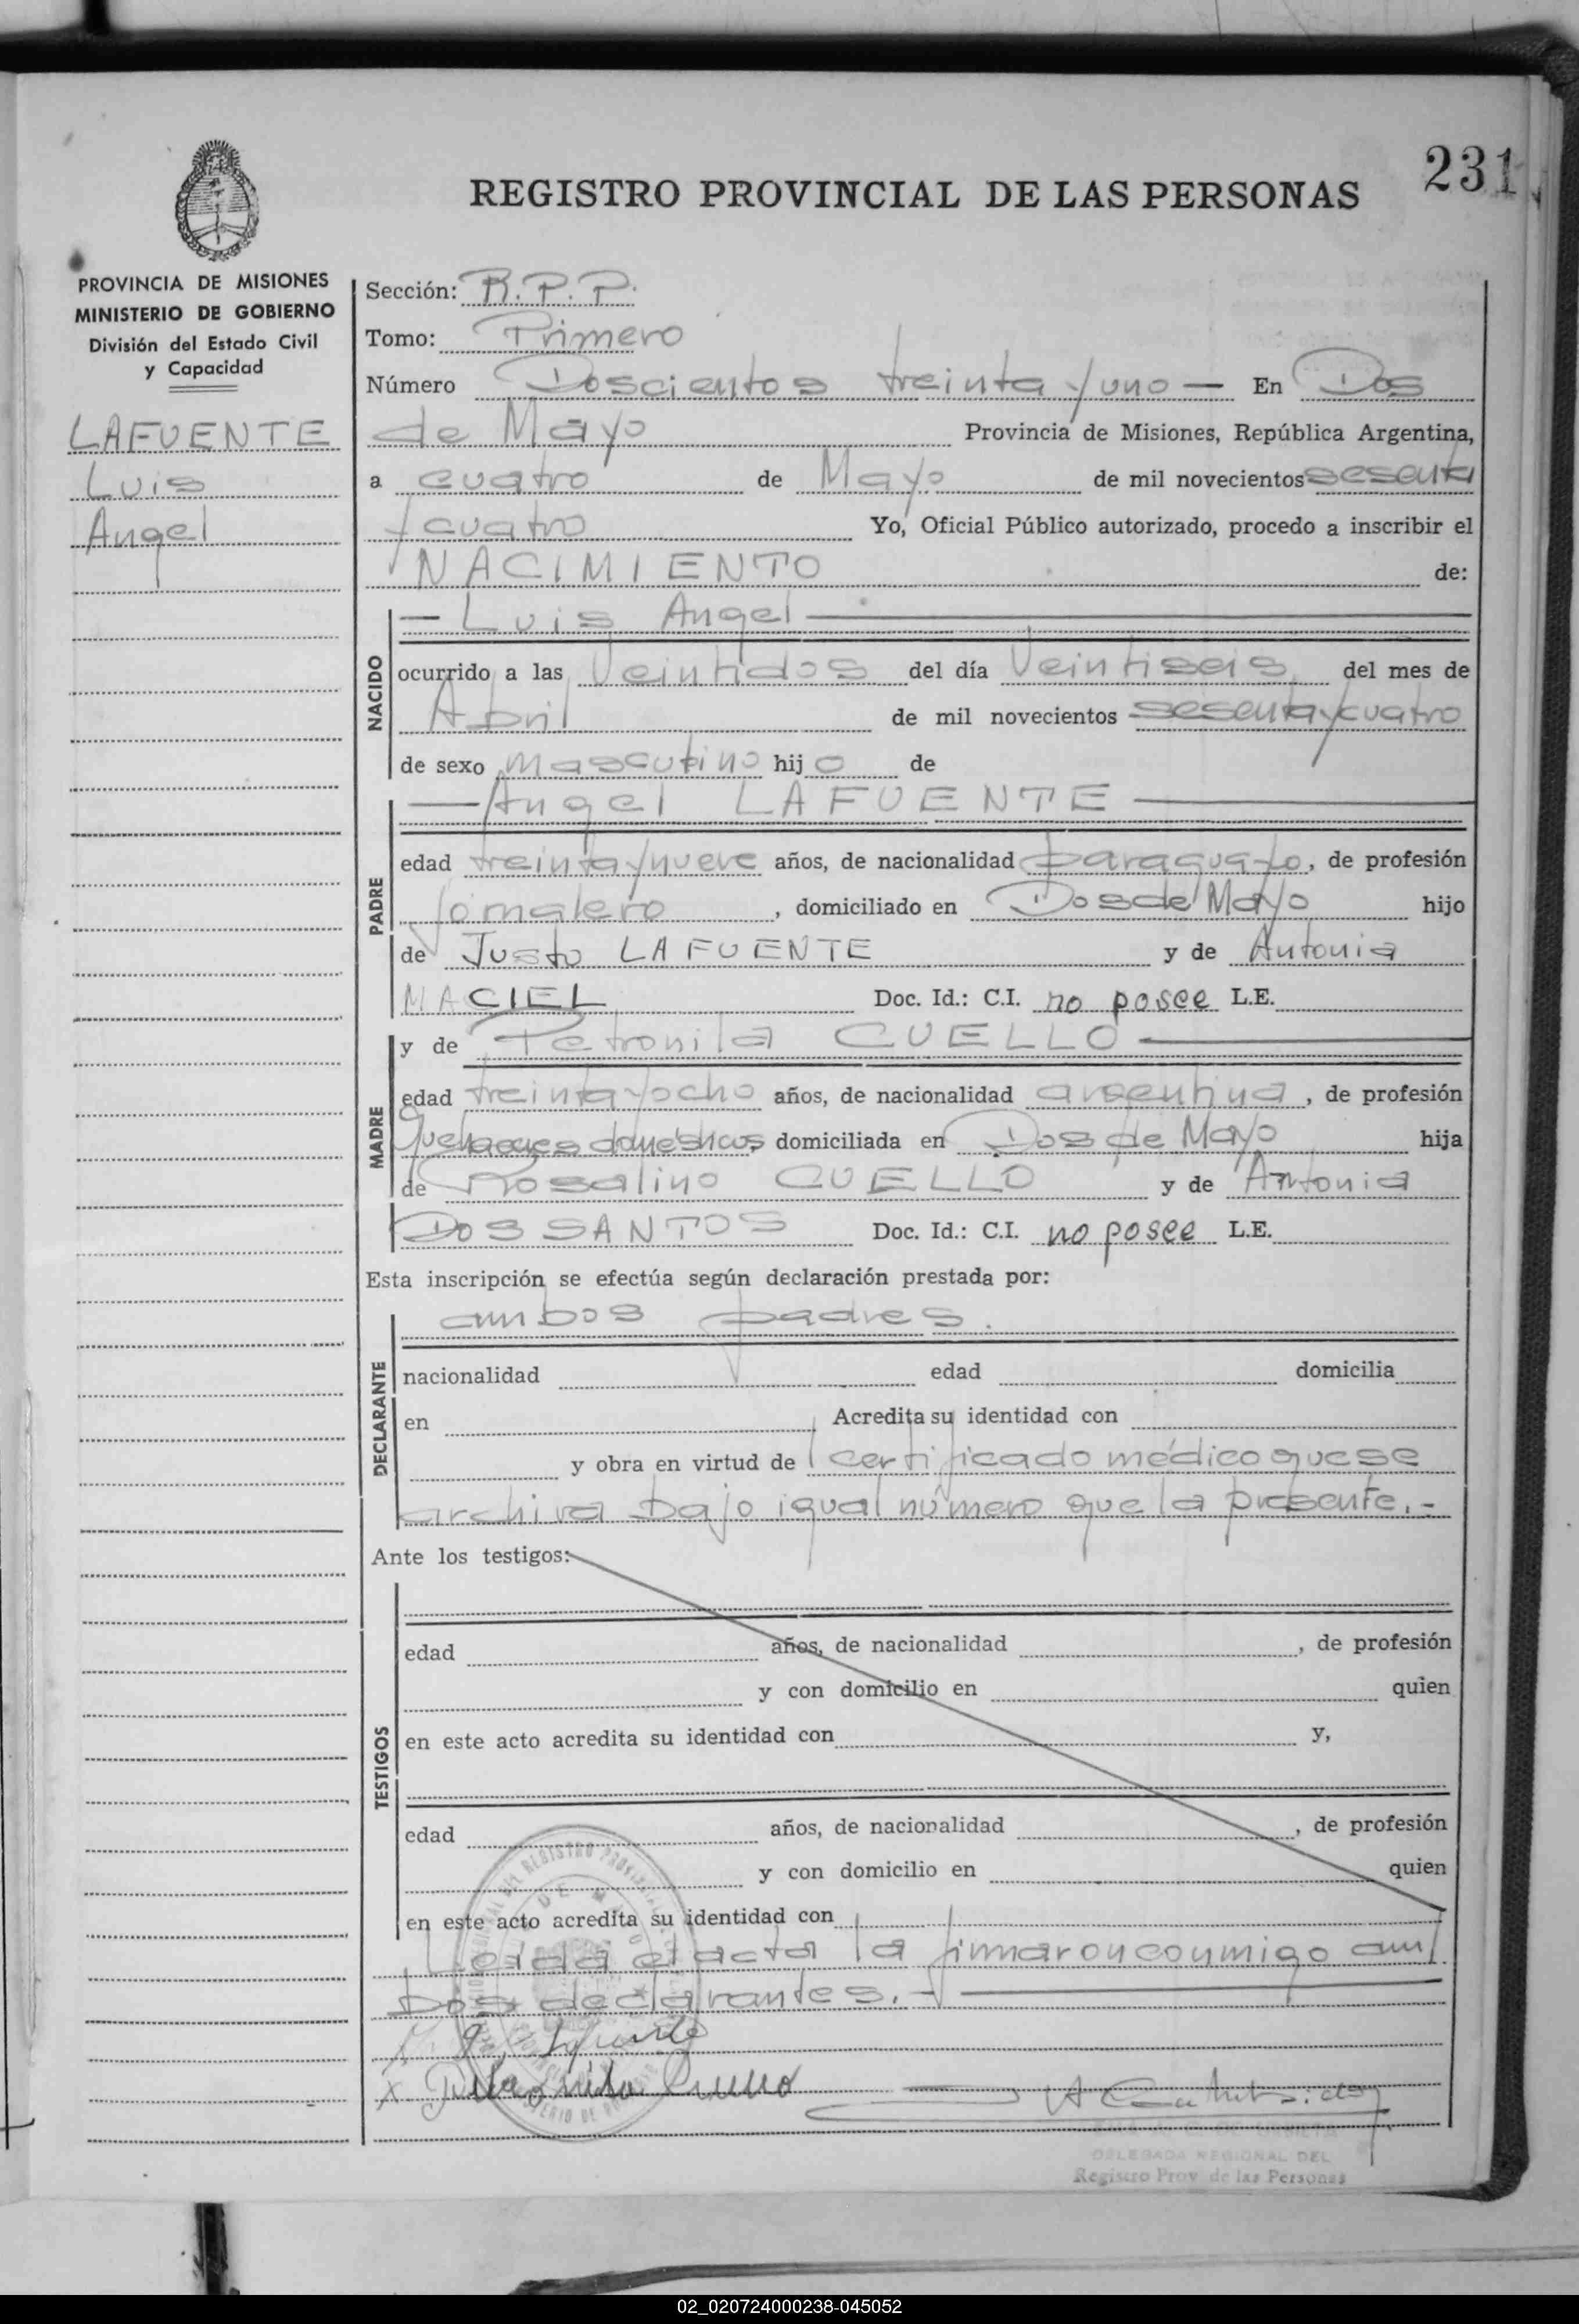 231
REGISTRO PROVINCIAL DE LAS PERSONAS
PROVINCIA DE MISIONES
MINISTERIO DE GOBIERNO
División del Estado Civil
y Capacidad
LAFUENTE
Luis
Angel
Sección: R.P.P.
Tomo: Primero
Número Doscientos treinta y uno — En Dos
de Mayo Provincia de Misiones, República Argentina,
a cuatro de Mayo de mil novecientos sesenta
y cuatro Yo, Oficial Público autorizado, procedo a inscribir el
NACIMIENTO de:
NACIDO
— Luis Angel —
ocurrido a las Veintidos del día Veintiseis del mes de
Abril de mil novecientos sesenta y cuatro
de sexo masculino hijo de
PADRE
— Angel LAFUENTE —
edad treinta y nueve años, de nacionalidad paraguayo, de profesión
Jornalero, domiciliado en Dos de Mayo hijo
de Justo LAFUENTE y de Antonia
MACIEL Doc. Id.: C.I. no posee L.E.
MADRE
y de Petronila CUELLO —
edad treinta y ocho años, de nacionalidad argentina, de profesión
Quehaceres domésticos, domiciliada en Dos de Mayo hija
de Rosalino CUELLO y de Antonia
DOS SANTOS Doc. Id.: C.I. no posee L.E.
Esta inscripción se efectúa según declaración prestada por:
DECLARANTE
ambos padres.
nacionalidad edad domicilia
en Acredita su identidad con
y obra en virtud de certificado médico que se
archiva bajo igual número que la presente.-
Ante los testigos:
TESTIGOS
edad años, de nacionalidad , de profesión
y con domicilio en quien
en este acto acredita su identidad con y,
edad años, de nacionalidad , de profesión
y con domicilio en quien
en este acto acredita su identidad con
Leida el acta la firmaron conmigo am
bos declarantes.-
DELEGADA REGIONAL DEL
Registro Prov. de las Personas
02_020724000238-045052